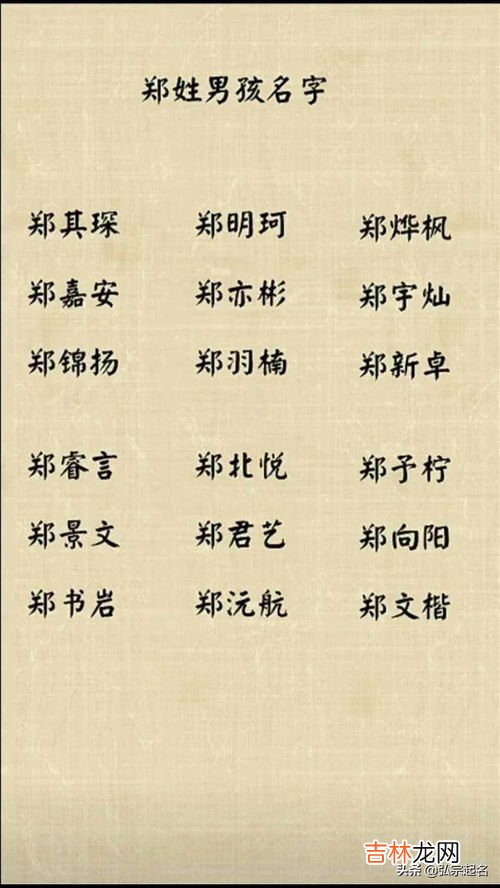 郑姓男孩名字
郑其琛 郑明珂 郑烨枫
郑嘉安 郑亦彬 郑宇灿
郑锦扬 郑羽楠 郑新卓
郑睿言 郑北悦 郑予柠
郑景文 郑君艺 郑向阳
郑书岩 郑沅航 郑文楷
吉林龙网
头条 @弘宗起名